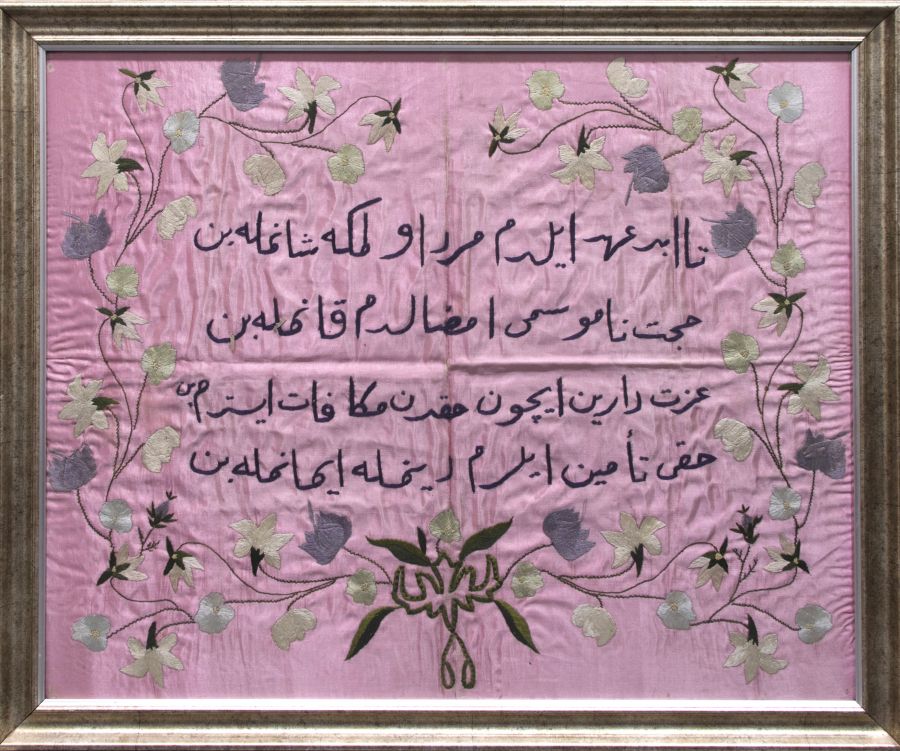 تا ابد عهد ايلدم مرد او لمكه شانمله بن
حجت ناموسمى امضالدم قانمله بن
عزت دارين ايچون حقدن مكافات ايسترم بن
حقى تأمين ايلرم دينمله ايمانمله بن